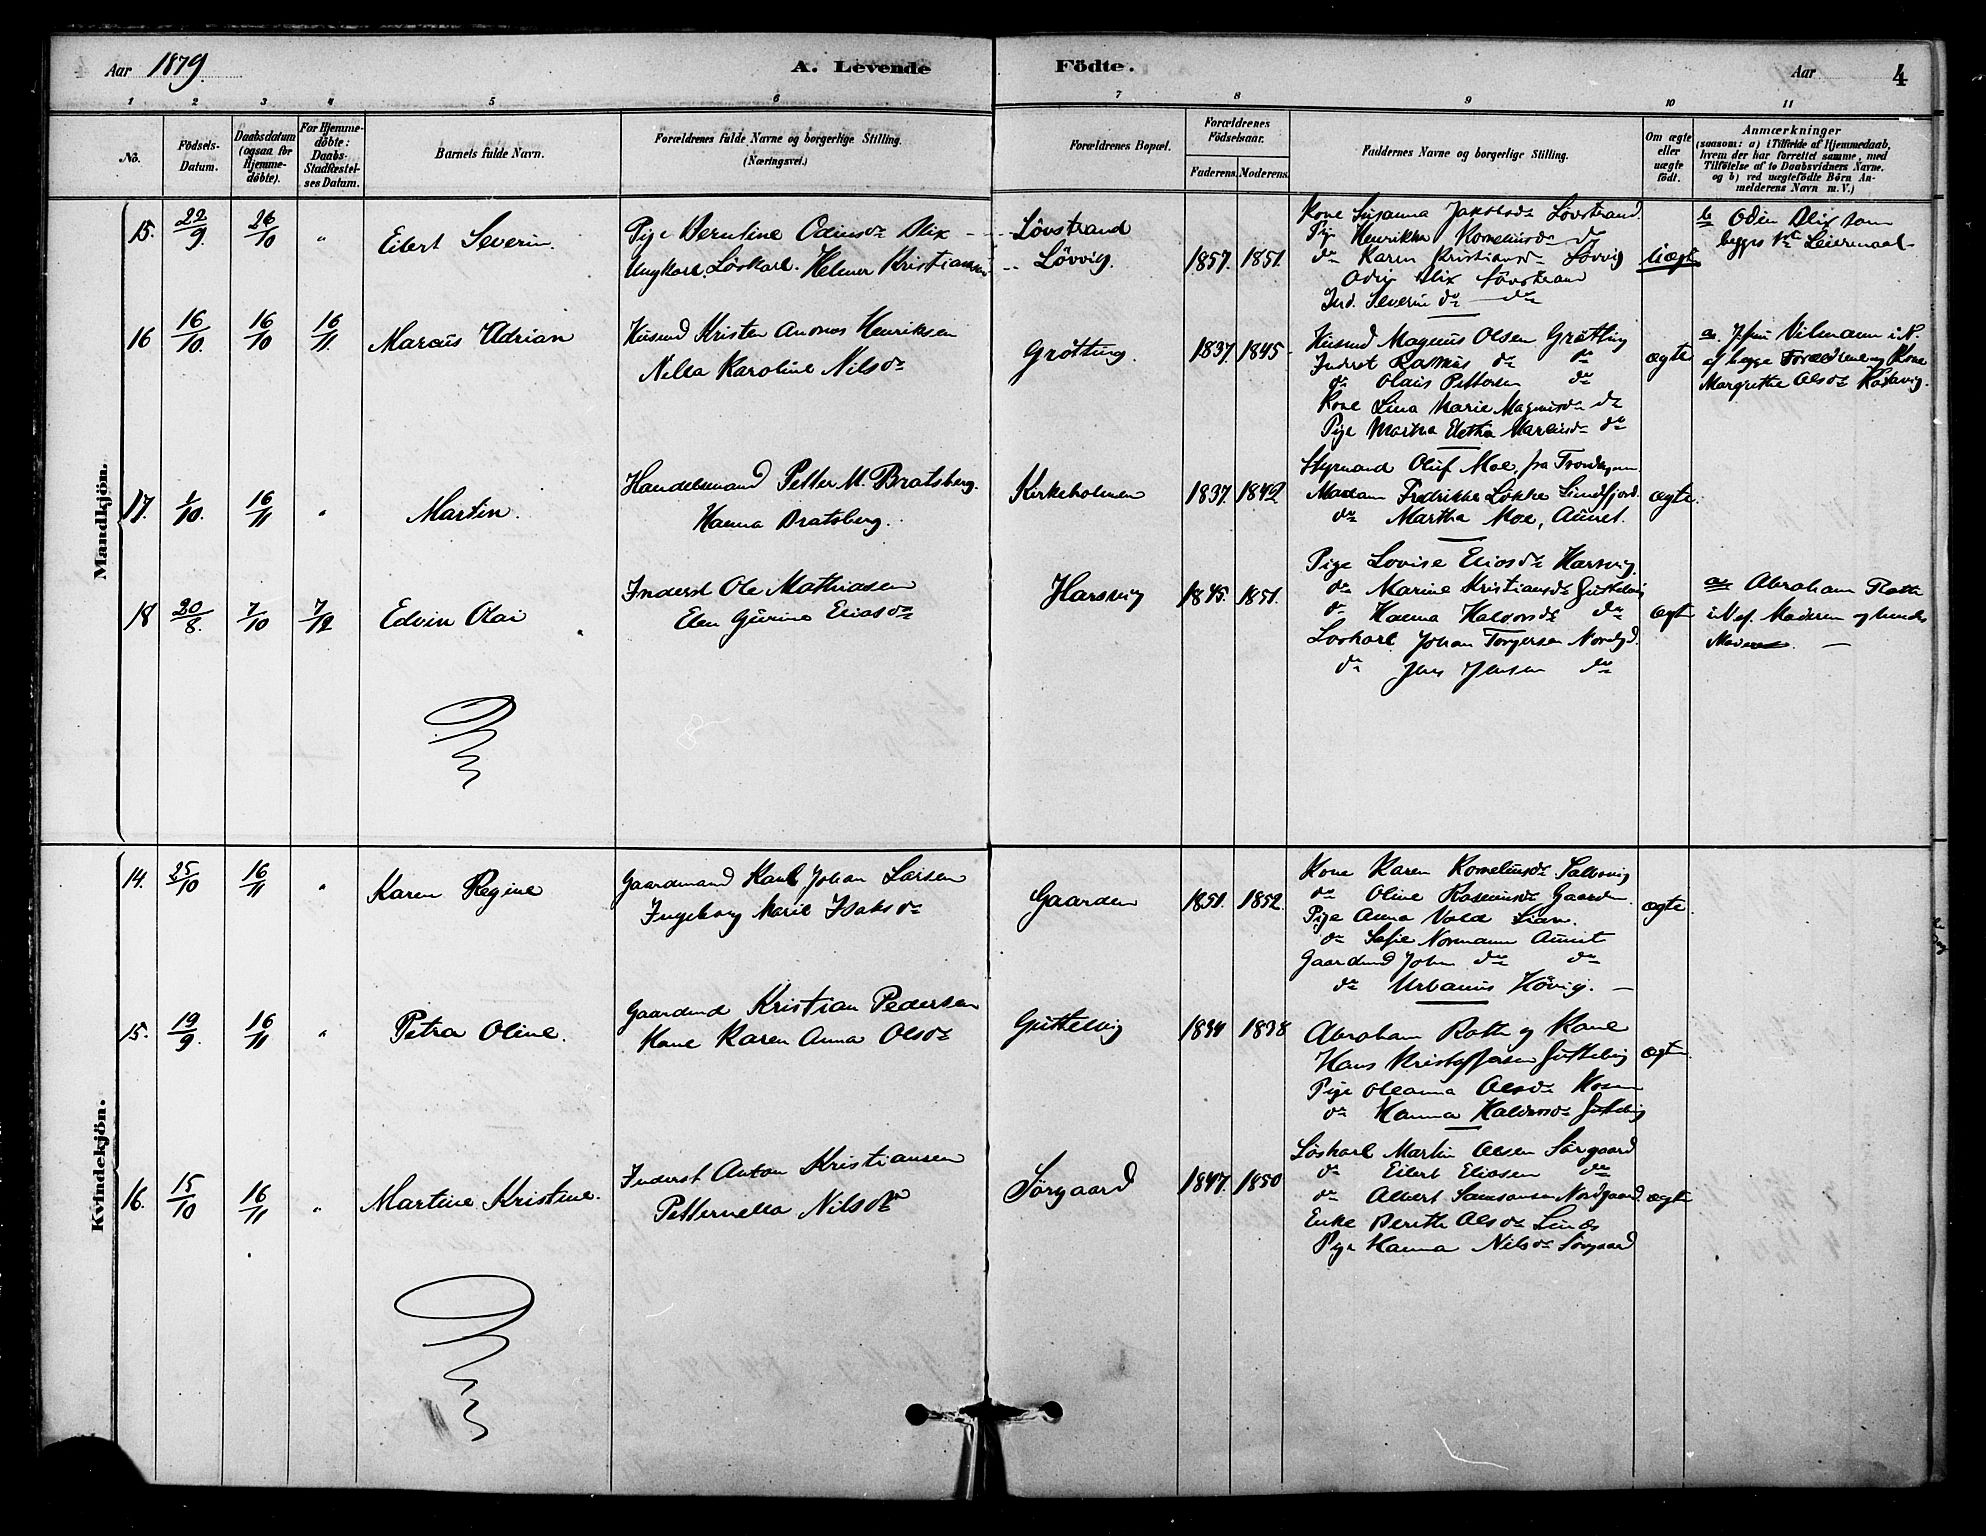 Aar 1879. A. Levende Födte. Aar 4
1 2 3 4 5 6 7 8 9 10 11
No.
Födsels-Datum.
Daabsdatum (ogsaa for Hjemme-döbte).
For Hjemme-döbte: Daabs-Stadfæstel-ses Datum.
Barnets fulde Navn.
Forældrenes fulde Navne og borgerlige Stilling.
(Næringsvei.)
Forældrenes Bopæl.
Forældrenes Födselsaar.
Faderens. Moderens.
Faddernes Navne og borgerlige Stilling.
Om ægte eller uægte födt.
Anmærkninger
(saasom: a) i Tilfælde af Hjemmedaab,
hvem der har forrettet samme, med
Tilföielse af to Daabsvidners Navne.
og b) ved uægtefödte Börn An-
melderens Navn m. V.)
Mandkjön.
15. 22/9. 26/10 " Eilert Severin.
Pige Berntine Odinsdr Blix
Ungkarl Löskarl Helmer Kristiansen
Lövstrand
Lövvig. 1857. 1851.
Kone Susanna Jakobsdr Lövstrand
Pige Henrikke Korneliusdr do
do Karen Kristiansdr Lövvig
Odin Blix Lövstrand
Ind. Severin do do
Uægte
b Odin Blix som
begges 1ste Leiermaal
16 16/10. 16/10 16/11. Marcus Adrian
Husmd Kristen Andreas Henriksen
Nilla Karoline Nilsdr
Grötting. 1837. 1845.
Husmd Magnus Olsen Grötting
Inderst Rasmus do do
do Olaus Pettersen do
Kone Lina Marie Magnusdr do
Pige Martha Eletha Mareusdr do
ægte
a. Vilmann i N.
af begge Forældrene og Kone
Margrethe Olsdr
17. 1/10. 16/11 " Martin.
Handelsmand Petter M. Bratsberg.
Hanna Bratsberg.
Kirkeholmen 1837. 1842
Styrmand Oluf Moe, fra Trondhjem
Madam Fredrikke Lökke Sundfjord.
do Martha Moe, Aunet.
ægte.
18 20/8. 7/10 7/12 Edvin Olai
Inderst Ole Mathiasen
Elen Gurine Eliasdr
Harsvig 1845. 1851.
Pige Lovise Eliasdr Harsvig.
do Marine Kristiansdr Guttelvig
do Hanna Haldorsdr do
Löskarl Johan Torgersen Nordgd.
do Jens Jensen do
ægte
a Abraham Roth
i N. af Moderen og hendes
Moder
Kvindekjön.
14. 25/10 16/11 " Karen Regine
Gaardmand Karl Johan Larsen
Ingeborg Marie Isaksdr
Gaarden 1851. 1852.
Kone Karen Korneliusdr
do Oline Rasmusdr Gaarden.
Pige Anna Vold Lian.
do Sofie Normann Aunet
Gaardmd John do do
do Urbanus Hövig.
ægte.
15. 19/9. 16/11 " Petra Oline.
Gaardmd Kristian Pedersen
Kone Karen Anna Olsdr
Guttelvig 1834 1838
Abraham Roth og Kone
Hans Kristoffersen Guttelvig
Pige Oleanna Olsdr
do Hanna Haldorsdr Guttelvig
ægte.
16. 15/10 16/11 " Martine Kristine.
Inderst Anton Kristiansen
Petternella Nilsdr
Sörgaard 1847. 1850
Löskarl Martin Olsen Sörgaard
do Eilert Eliasen do
do Albert Samsonsen Nordgaard.
Enke Berith Olsdr
Pige Hanna Nilsdr Sörgaard
ægte